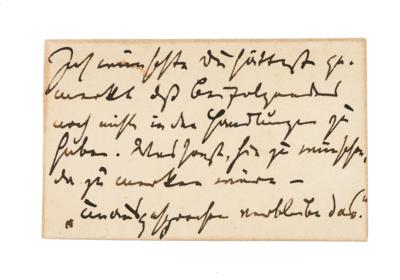 Ich wünschte Du hättest ge-
merkt daß Beifolgendes
noch nicht in den Handlungen zu
haben. Was sonst, hie zu wünschen,
da zu merken wäre –
„Unausgesprochen verbleibe das."